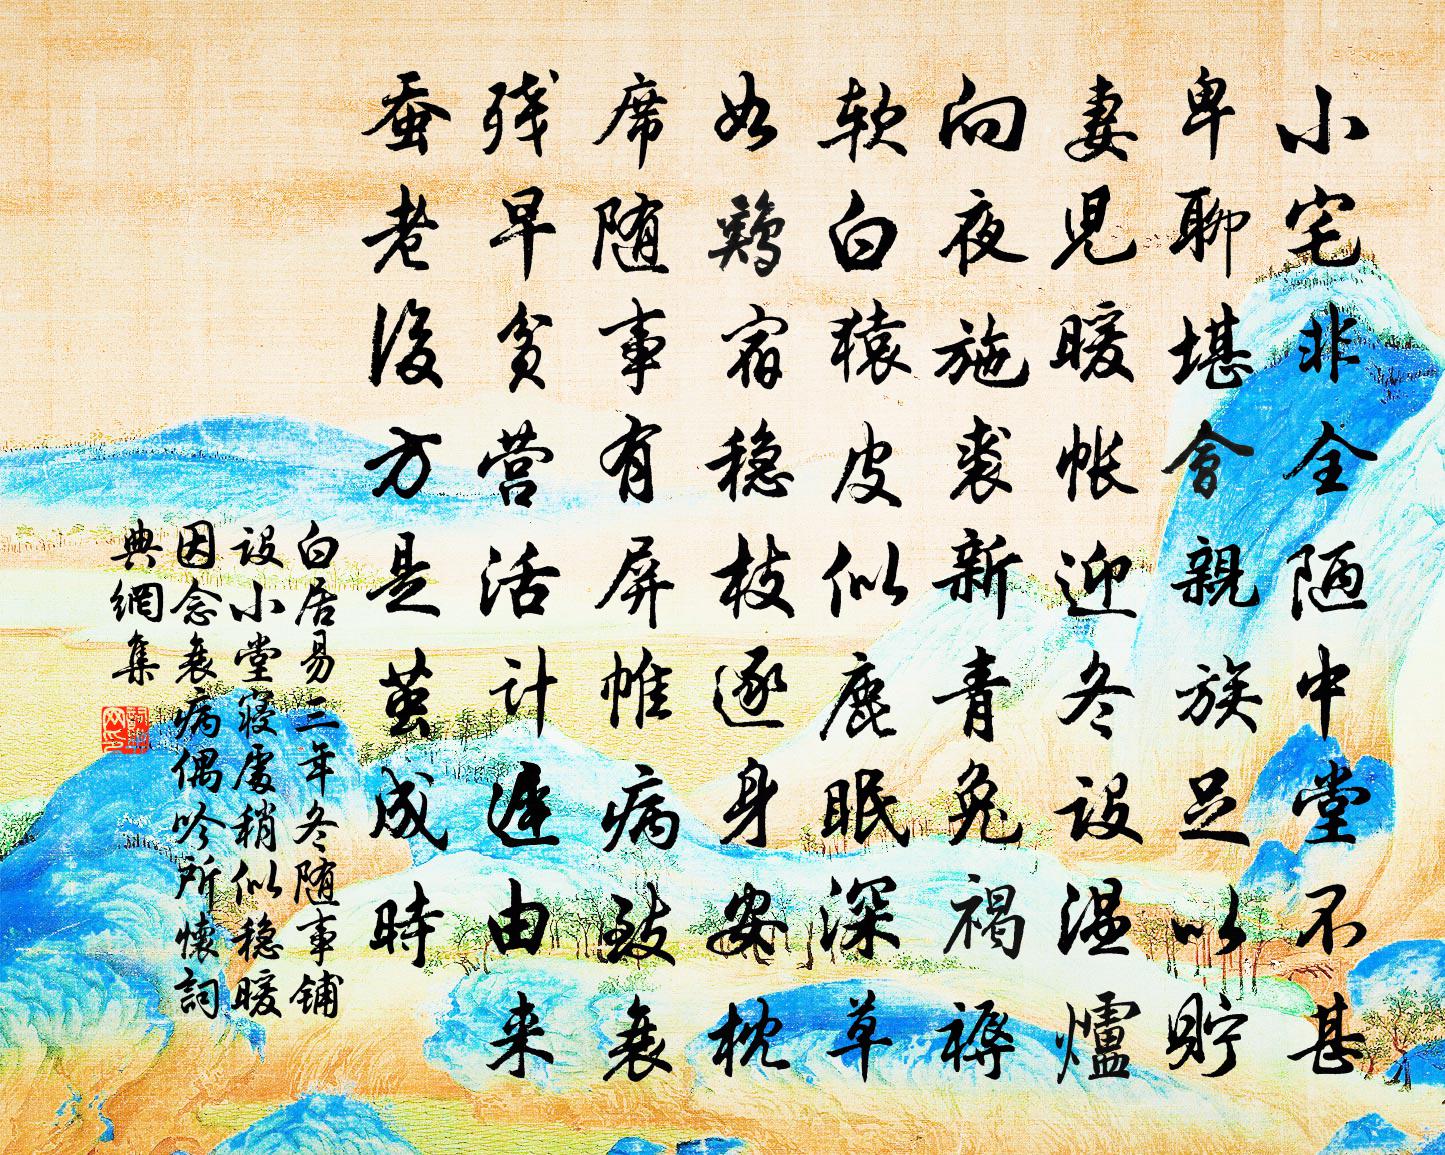 小宅非全陋中堂不甚
卑聊堪會親族足以貯
妻児暖帳迎冬設温爐
向夜施裘新青兔褐褥
軟白猿皮似鹿眠深草
如鶏宿穏枝逐身安枕
席随事有屏帷病致衰
残早貧营活計遅由来
蚕老後方是茧成時
白居易三年冬随事鋪
設小堂寝處稍似穏暖
因念衰病偶吟所懷詞
典網集